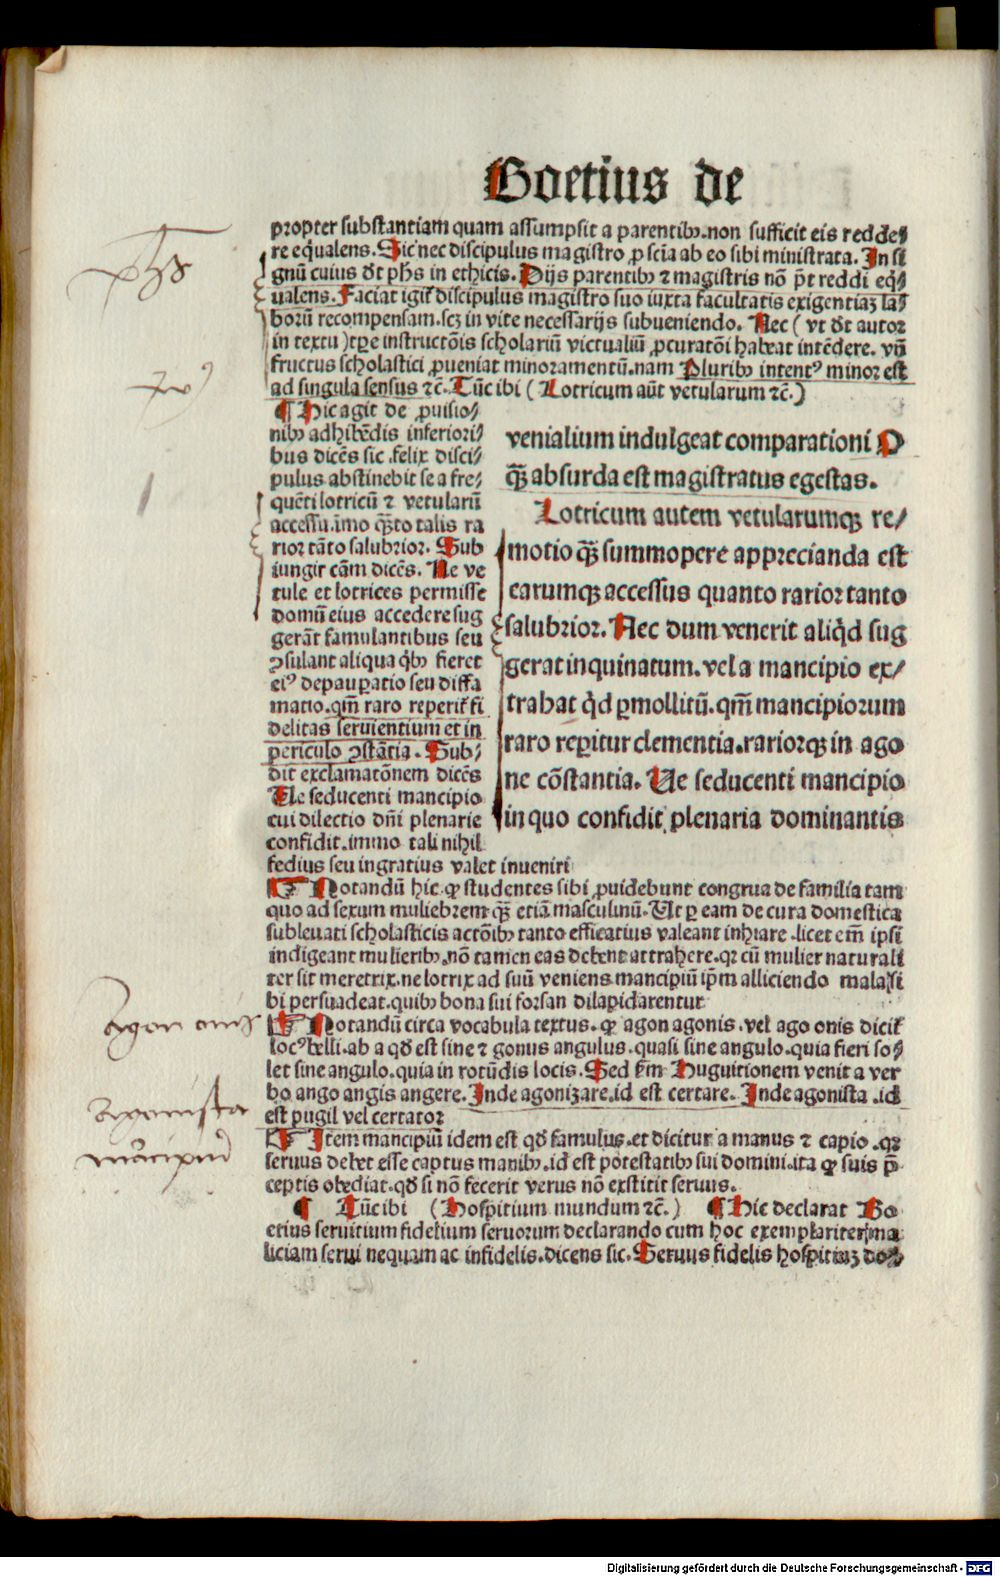 Boetius de
propter substantiam quam assumpsit a parentibꝰ. non sufficit eis redde⸗
re eq̄ualens. Sic nec discipulus magistro ꝓ sciã ab eo sibi ministrata. In si
gnū cuius dt̄ ph̄s in ethicis. Dijs parentibꝫ ⁊ magistris nō pt̄ reddi eq̄⸗
ualens. Faciat igit̃ discipulus magistro suo iuxta facultatis exigentiaꝫ la⸗
borū recompensam. scꝫ in vite necessarijs subueniendo. Nec ( vt dt̄ autor
in textu ) tp̄e instructōis scholariū victualiū ꝓcuratōi habeat intēdere. vn̄
fructus scholastici ꝓueniat minoramentū. nam Pluribꝫ intentꝰ minor est
ad singula sensus ⁊c̄. Tūc ibi ( Lotricum aūt vetularum ⁊c̄. )
¶ Hic agit de ꝓuisio⸗
nibꝫ adhibēdis inferiori⸗
bus dicēs sic. felix disci⸗
pulus abstinebit se a fre⸗
quēti lotricū ⁊ vetularū
accessu. imo q̄ꝫto talis ra
rior tāto salubrior. Sub
iungit cām dicēs. Ne ve
tule et lotrices permisse
domū eius accedere sug
gerāt famulantibus seu
ꝯsulant aliqua q̄bꝫ fieret
eiꝰ depauꝑatio seu diffa
matio. qm̄ raro reperit̃ fi
delitas seruientium et in
periculo ꝯstātia. Sub⸗
dit exclamatōnem dicēs
Ue seducenti mancipio
cui dilectio dn̄i plenarie
confidit. immo tali nihil
fedius seu ingratius valet inueniri
venialium indulgeat comparationi O
q̄ꝫ absurda est magistratus egestas.
Lotricum autem vetularumqꝫ re⸗
motio q̄ꝫ summopere apprecianda est
earumqꝫ accessus quanto rarior tanto
salubrior. Nec dum venerit aliq̄d sug
gerat inquinatum. vel a mancipio ex⸗
trahat q̄d ꝑmollitū. qm̄ mancipiorum
raro reꝑitur clementia. rariorqꝫ in ago
ne cōstantia. Ue seducenti mancipio
in quo confidit plenaria dominantis
¶ Notandū hic. ꝙ studentes sibi ꝓuidebunt congrua de familia tam
quo ad sexum muliebrem q̄ꝫ etiā masculinū. Ut ꝑ eam de cura domestica
subleuati scholasticis actōibꝫ tanto efficatius valeant inhiare. licet em̄ ipsi
indigeant mulieribꝫ. nō tamen eas debent attrahere. qꝛ cū mulier naturali
ter sit meretrix. ne lotrix ad suū veniens mancipiū ip̄m alliciendo mala si
bi persuadeat. quibꝫ bona sui forsan dilapidarentur
¶ Notandū circa vocabula textus. ꝙ agon agonis. vel ago onis dicit̃
locꝰ belli. ab a qd̄ est sine ⁊ gonus angulus. quasi sine angulo. quia fieri so⸗
let sine angulo. quia in rotūdis locis. Sed ẜm Huguitionem venit a ver
bo ango angis angere. Inde agonizare. id est certare. Inde agonista. id
est pugil vel certator
¶ Item mancipiū idem est qd̄ famulus. et dicitur a manus ⁊ capio. qꝛ
seruus debet esse captus manibꝫ. id est potestatibꝫ sui domini. ita ꝙ suis p̄
ceptis obediat. qd̄ si nō fecerit verus nō exstitit seruus.
¶ Tūc ibi ( Hospitium mundum ⁊c̄. ) ¶ Hic declarat Bo
etius seruitium fidelium seruorum declarando cum hoc exemplariter ma
liciam serui nequam ac infidelis. dicens sic. Seruus fidelis hospitiuꝫ do⸗
phs
agon onis
agonista
mācipiū
Digitalisierung gefördert durch die Deutsche Forschungsgemeinschaft - DFG